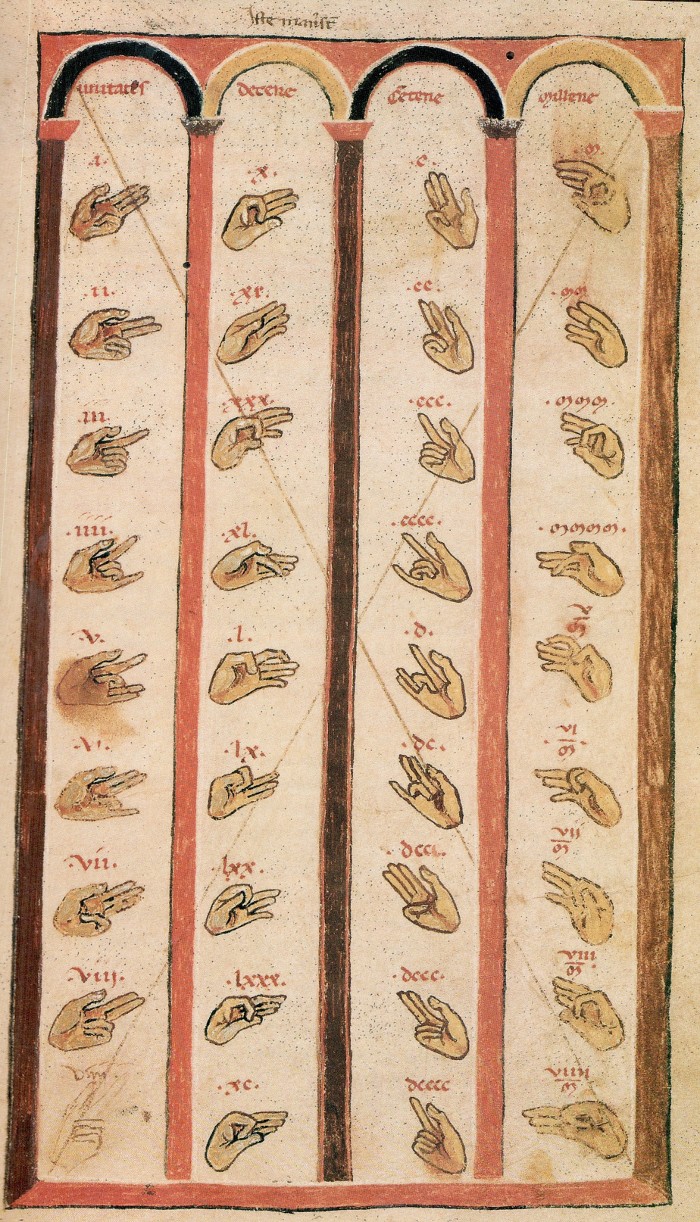 unitates decene Cẽtene Millene
.i. .x. .c. .M.
.ii. .xx. .cc. .MM.
.iii. .xxx. .ccc. .MMM.
.iiii. .xl. .cccc. .MMMM.
.v. .l. .d. v M
.vi. .lx. .dc. .vi. M
.vii. .lxx. .dcc. vii M
.viii. .lxxx. .dccc. viii M
viiii .xc. dcccc viiii M